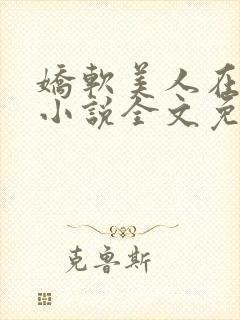 嬌軟美人在
小說全文免
克鲁斯